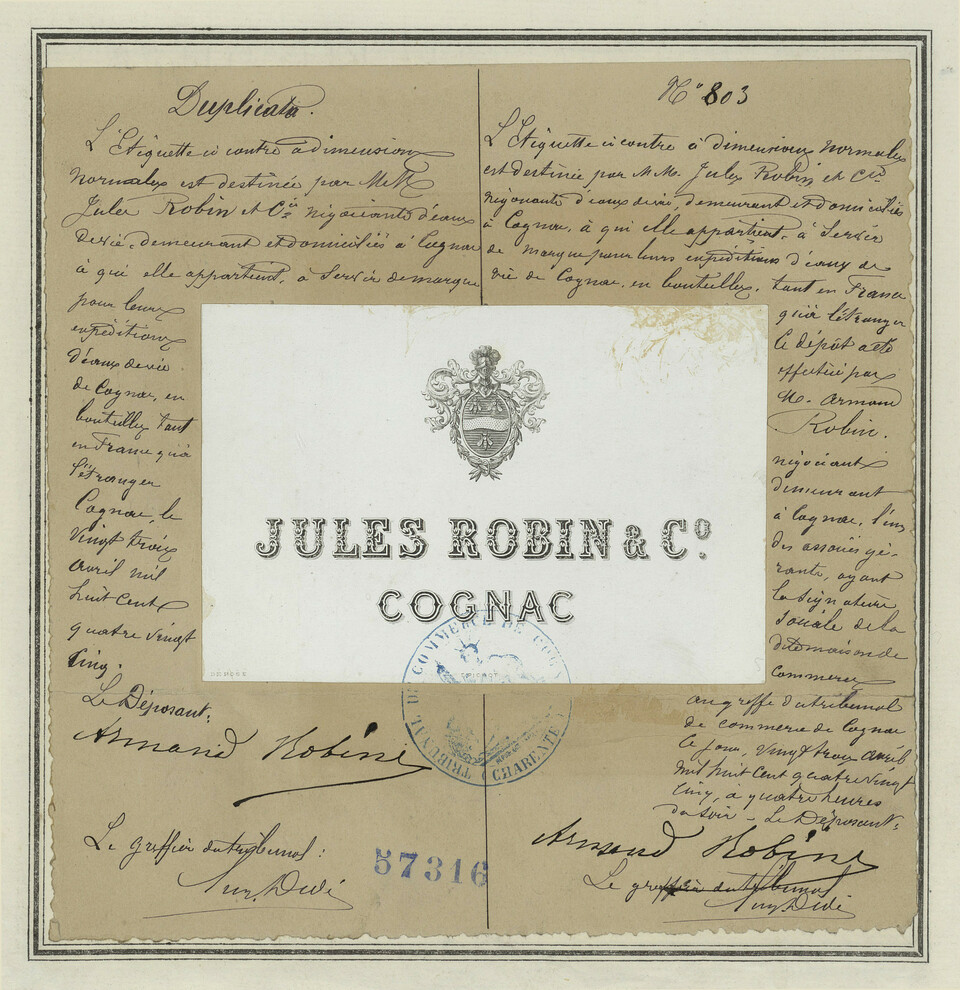 Duplicata.
L'Etiquette ci contre à dimensions
normales est destinée par MM.
Jules Robin et Cie négociants d'eaux
de vie, demeurant et domiciliés à Cognac
à qui elle appartient, à servir de marque
pour leurs
expéditions
d'eaux de vie
de Cognac, en
bouteilles tant
en France qu'à
l'étranger
Cognac, le
vingt trois
avril mil
huit cent
quatre vingt
cinq.
Le Déposant:
Armand Robin
Le greffier du tribunal:
No 803
L'Etiquette ci contre à dimensions normales
est destinée par M.M. Jules Robin et Cie
négociants d'eaux de vie, demeurant et domiciliés
à Cognac, à qui elle appartient, à servir
de marque pour leurs expéditions d'eaux de
vie de Cognac, en bouteilles, tant en France
qu'à l'étranger
Ce dépôt a été
effectué par
M. Armand
Robin.
négociant
demeurant
à Cognac, l'un
des associés gé-
rants, ayant
la signature
sociale de la
dite maison de
commerce
au greffe du tribunal
de commerce de Cognac
ce jour, vingt trois avril
mil huit cent quatre vingt
cinq, à quatre heures
du soir - Le Déposant:
Armand Robin
Le greffier du tribunal
JULES ROBIN & Co.
COGNAC
TRIBUNAL DE COMMERCE DE COGNAC
(CHARENTE)
57316